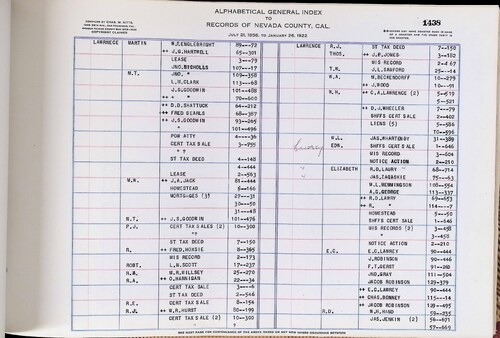 ALPHABETICAL GENERAL INDEX
TO
RECORDS OF NEVADA COUNTY, CAL.
JULY 21, 1856, TO JANUARY 28, 1922
1438
LAWRENCE MARTIN W.J. ENGLEBRIGHT 89---72
++ J.G. HARTWELL 65---301
LEASE 3---79
JNO. NICHOLLS 107---17
M.T. JNO. " 109---358
L.W. CLARK 113---68
J.S. GOODWIN 101---488
++ " " 70---600
++ D.D. SHATTUCK 64---212
++ FRED SEARLS 68---387
++ J.S. GOODWIN 93---265
" 101---496
POW ATTY 4---36
CERT TAX SALE 3---795
" ?
ST TAX DEED 4---148
4---444
LEASE 2---563
W.W. ++ A. JACK 81---444
HOMESTEAD 6---166
MORTG-GES (3) 27---31
30---50
31---48
N.T. ++ J.S. GOODWIN 101---476
P.J. CERT TAX SALES (2) 10---300
"
ST TAX DEED 7---150
R. ++ FRED. HOXSIE 8---365
MIS RECORD 2---173
ROBT. L.N. SCOTT 17---237
R.A. M.R. WILLSEY 25---270
R.A. ++ D. HARRIGAN 22---34
CERT TAX SALE 3---6
ST TAX DEED 2---546
R.E. CERT TAX SALE 8---154
R.J. ++ W.R. HURST 50---199
CERT TAX SALE (2) 10---300
" ?
LAWRENCE R.J. ST TAX DEED 7---150
THOS. ++ J.B. JONES 3---182
MIS RECORD 2---467
T.N. J.L. SANFORD 25---14
W.A. W. BECKENDORF 10---279
++ J. WOOD 10---91
W.H. ++ C.A. LAWRENCE (2) 5---519
5---521
++ D.J. WHEELER 7---79
SHFFS CERT SALE 2---402
LIENS (5) 5---586
TO---596
W.L. JAS. WHARTONBY 31---389
EDW. SHFFS CERT SALE 1---646
MIS RECORD 3---604
NOTICE ACTION 2---210
ELIZABETH R.D. LAURY 68---714
JAS. ZAGASKIE 75---443
W.L. HENNINGTON 108---554
A.G. GEORGE 113---337
++ R.D. LAWRY 69---653
++ R. " 114---7
HOMESTEAD 5---50
SHFFS CERT SALE 1---646
MIS RECORDS (2) 3---458
" 3---458
NOTICE ACTION 2---210
E.C. E.O. LAWREY 90---444
J. ROBINSON 90---446
F.T. GERST 91---280
JNO. GRAY 111---504
JACOB ROBINSON 129---379
++ E.O. LAWREY 90---444
++ CHAS. BONNEY 115---14
++ JACOB ROBINSON 129---495
R.D. W.H. HAND 59---235
JAS. JENKIN (2) 56---671
57---669
SEE NEXT PAGE FOR CONTINUANCE OF THE ABOVE NAMES